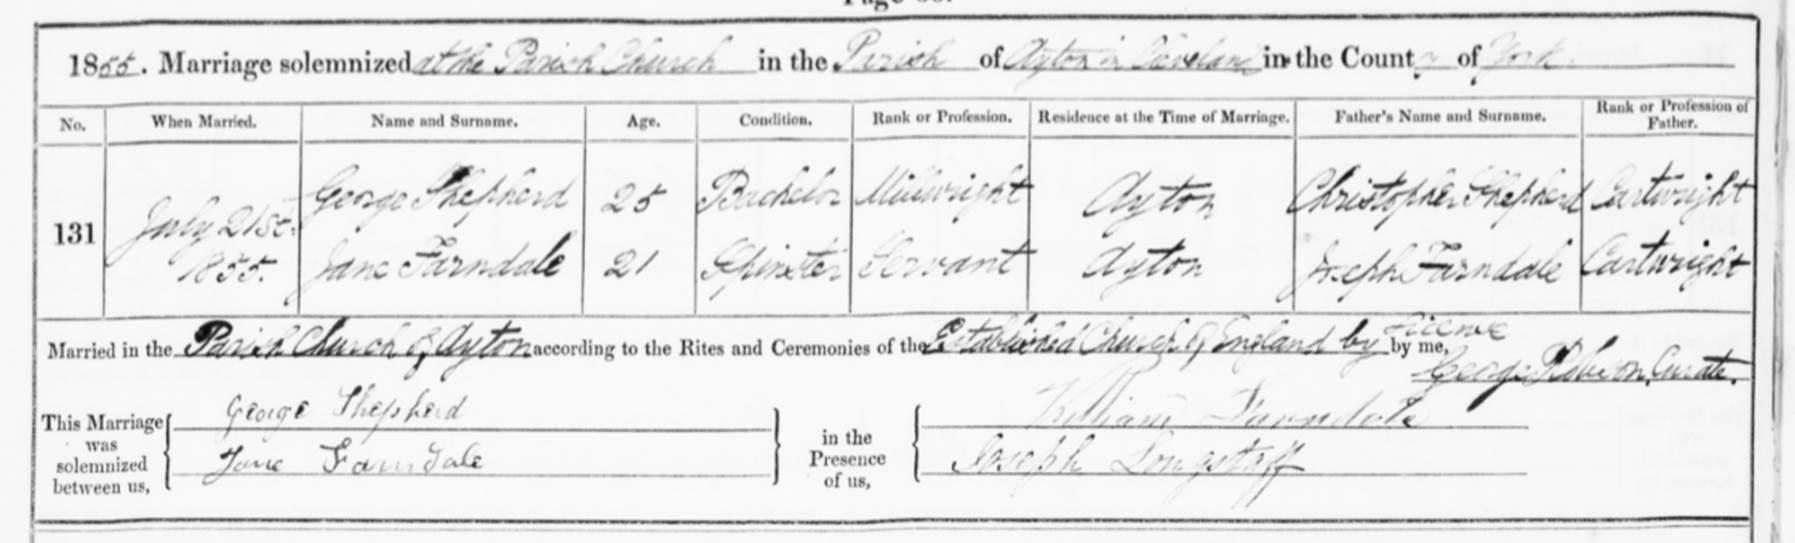 1855. Marriage solemnized at the Parish Church in the Parish of Ayton in Cleveland in the County of York
No. When Married. Name and Surname. Age. Condition. Rank or Profession. Residence at the Time of Marriage. Father's Name and Surname. Rank or Profession of Father.
131 July 21st. 1855. George Shepherd 25 Bachelor Millwright Ayton Christopher Shepherd Cartwright
Jane Farndale 21 Spinster Servant Ayton Joseph Farndale Cartwright
Married in the Parish Church of Ayton according to the Rites and Ceremonies of the Established Church of England by Licence by me,
George Robson, Curate.
This Marriage was solemnized between us, George Shepherd
Jane Farndale
in the Presence of us, William Farndale
Joseph Longstaff